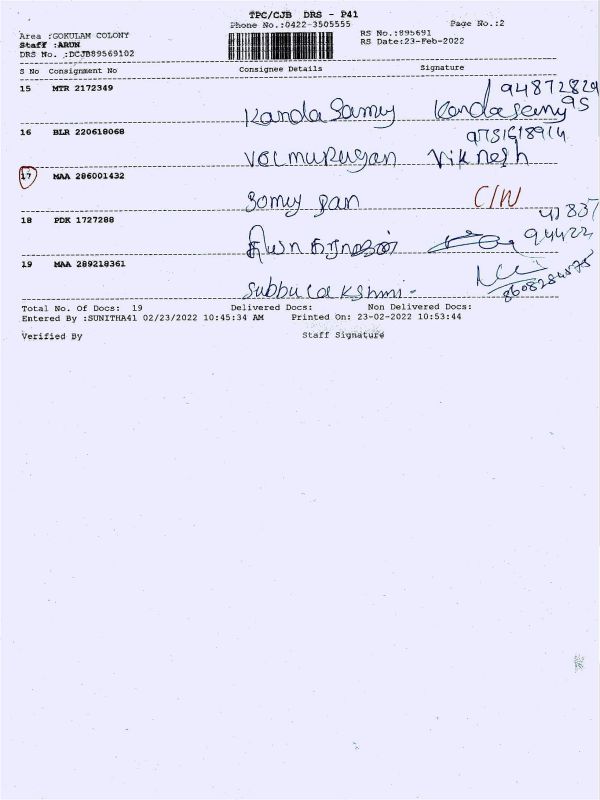 TPC/CJB DRS - P41
Phone No.:0422-3505555 Page No.:2
Area :GOKULAM COLONY RS No.:895691
Staff :ARUN RS Date:23-Feb-2022
DRS No. :DCJB89569102
S No Consignment No Consignee Details Signature
15 MTR 2172349 94872829
95
Kanda Samy Kandasamy
16 BLR 220618068
Velmurugan Viknesh
17 MAA 286001432
Somy pan C/N
18 PDK 1727288
19 MAA 289218361
Subbulakshmi -
Total No. Of Docs: 19 Delivered Docs: Non Delivered Docs:
Entered By :SUNITHA41 02/23/2022 10:45:34 AM Printed On: 23-02-2022 10:53:44
Verified By Staff Signature